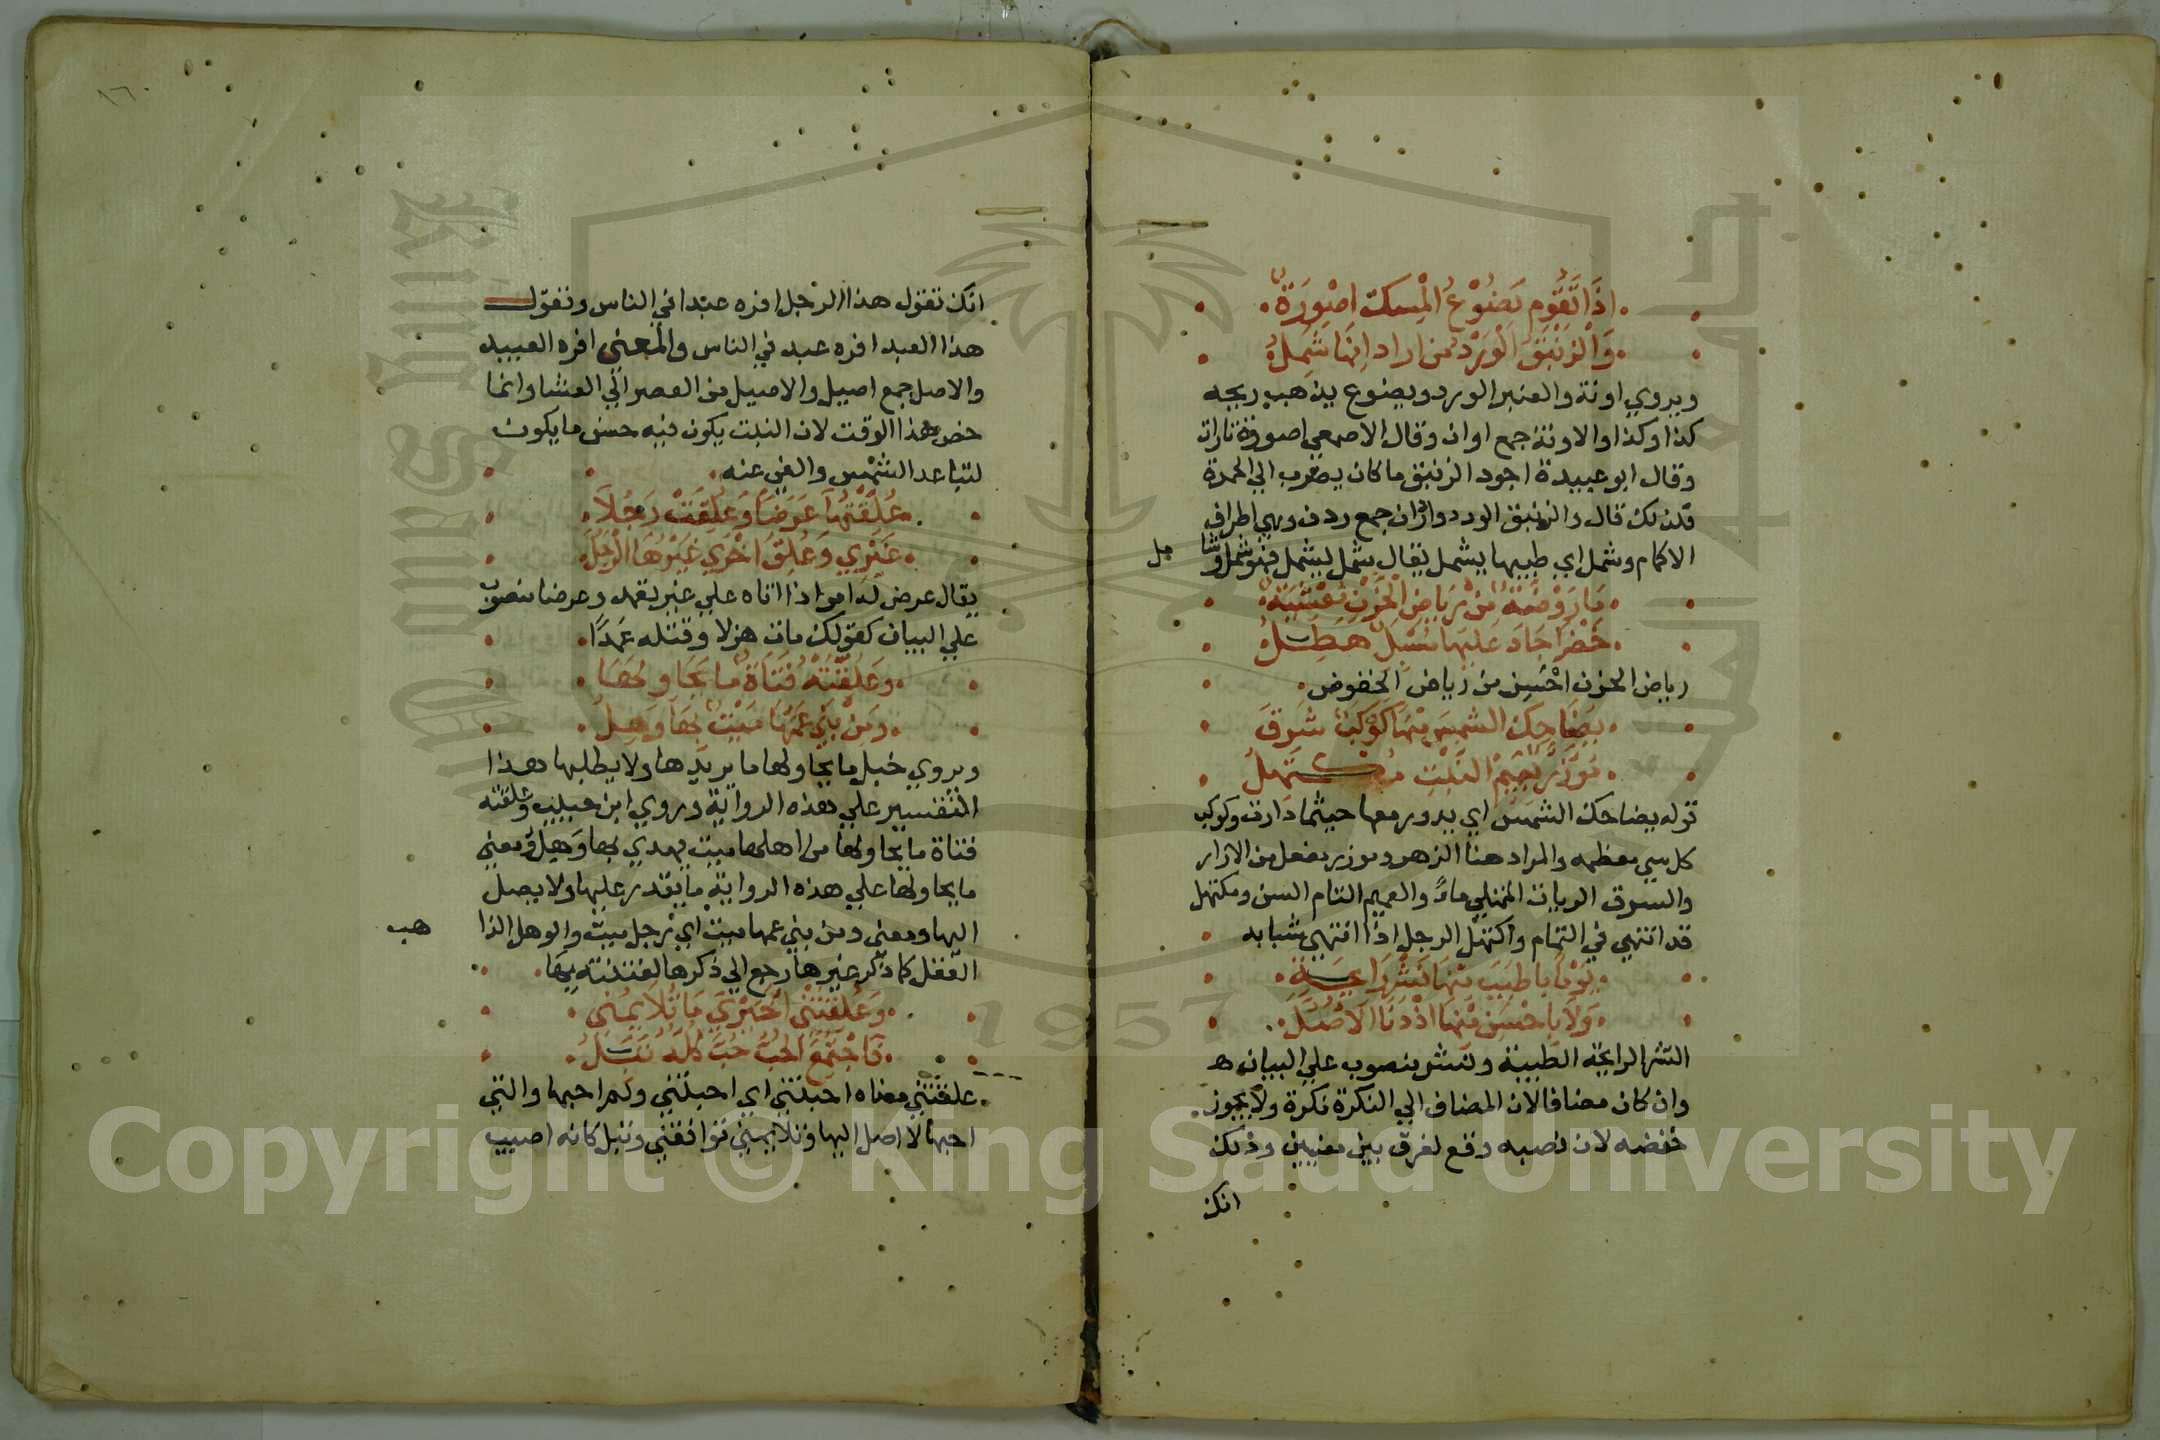 اذَا تَقُوم يَضُوْعُ الْمِسكُ اصْوِرَةً
وَالْزَنْبَقُ الْوَرْدُ من اردانِهَا شَمِلُ
ويروي اونة والعنبر الورد ويضوع يذهب ريحه
كذا وكذا والاونة جمع اوان وقال الاصمعي اصورة تارات
وقال ابو عبيدة اجود الزنبق ما كان يضرب الي الحمرة
فلذلك قال والزنبق الورد واردان جمع ردن وهي اطراف
الاكمام وشمل اي طيبها يشمل يقال شمل يشمل فهو شمل وشا
مل
مَا رَوْضَةٌ مِنْ رِيَاضِ الْحَزْنِ مُعْشِبَةٌ
خَضْرَا جَادَ عَلَيْهَا مُسْبِلٌ هَطِلُ
رياض الحزن احسن من رياض الخفوض
يُضَاحِكُ الشمسَ مِنْهَا كَوْكَبٌ شَرِقَ
مُؤَزَّرٌ بِعَمِيمِ النَّبْتِ مُكْتَهِلُ
قوله يضاحك الشمس اي يدور معها حيثما دارت وكوكب
كل شي معظمه والمراد هنا الزهر وموزر مفعل من الازار
والشرق الريان الممتلي ماءً والعميم التام السن ومكتهل
قد انتهي في التمام واكتهل الرجل اذا انتهي شبابه
يَوْمًا باطيَبَ مِنْهَا نَشْرَ رَايِحَةٍ
وَلَا بِاحْسَنِ مِنْهَا اذْ دَنَا الاُصُلُ
النشر الرايحة الطيبة ونشر منصوب علي البيان
وان كان مضافا لان المضاف الي النكرة نكرة ولا يجوز
خفضه لان نصبه وقع لفرق بين معنيين وذلك
انك
٨٦٠
انك تقول هذا الرجل افره عبدا في الناس وتقول
هذا العبد افره عبد في الناس والمعني افره العبيد
والاصل جمع اصيل والاصيل من العصر الي العشا وانما
خص هذا الوقت لان النبت يكون فيه حسن ما يكون
لتباعد الشمس والفي عنه
عُلِّقْتُهَا عَرَضًا وَعُلِّقَتْ رَجُلاً
غَيْرِي وَعُلِّقَ اخْرَي غَيْرُهَا الرَّجُلُ
يقال عرض له امر اذا اتاه علي غير تعمد وعرضا منصوب
علي البيان كقولك مات هزلا وقتله عَمدًا
وَعُلِّقَتْهُ فَتَاةٌ مَا يُحَاوِلُهَا
وَمِنْ بَنِي عَمِّهَا مَيِّتٌ بِهَا وَهِلُ
ويروي خبل ما يحاولها ما يريدها ولا يطلبها هذا
التفسير علي هذه الرواية وروي ابن حبيب وعلقته
فتاة ما يحاولها من اهلها ميت يهدي بها وَهِلُ ومعني
ما يحاولها علي هذه الرواية ما يقدر عليها ولا يصل
اليها ومعني ومن بني عمها ميت اي رجل ميت والوهل الذا
هب
العقل كما ذكر غيرها رجع الي ذكرها لفتنته بِهَا
وَعُلِّقَتْنِي اُخَيْرَي مَا تُلَايِمُنِي
فَاجْتَمَعَ الحُبُّ حُبٌّ كُلُّهُ تَبَلُ
علقتني معناه احبتني اي احبتني ولم احبها والتي
احبها لا اصل اليها وتلايمني توافقني وتبل كانه اصيب
Copyright © King Saud University
King Saud University
1957